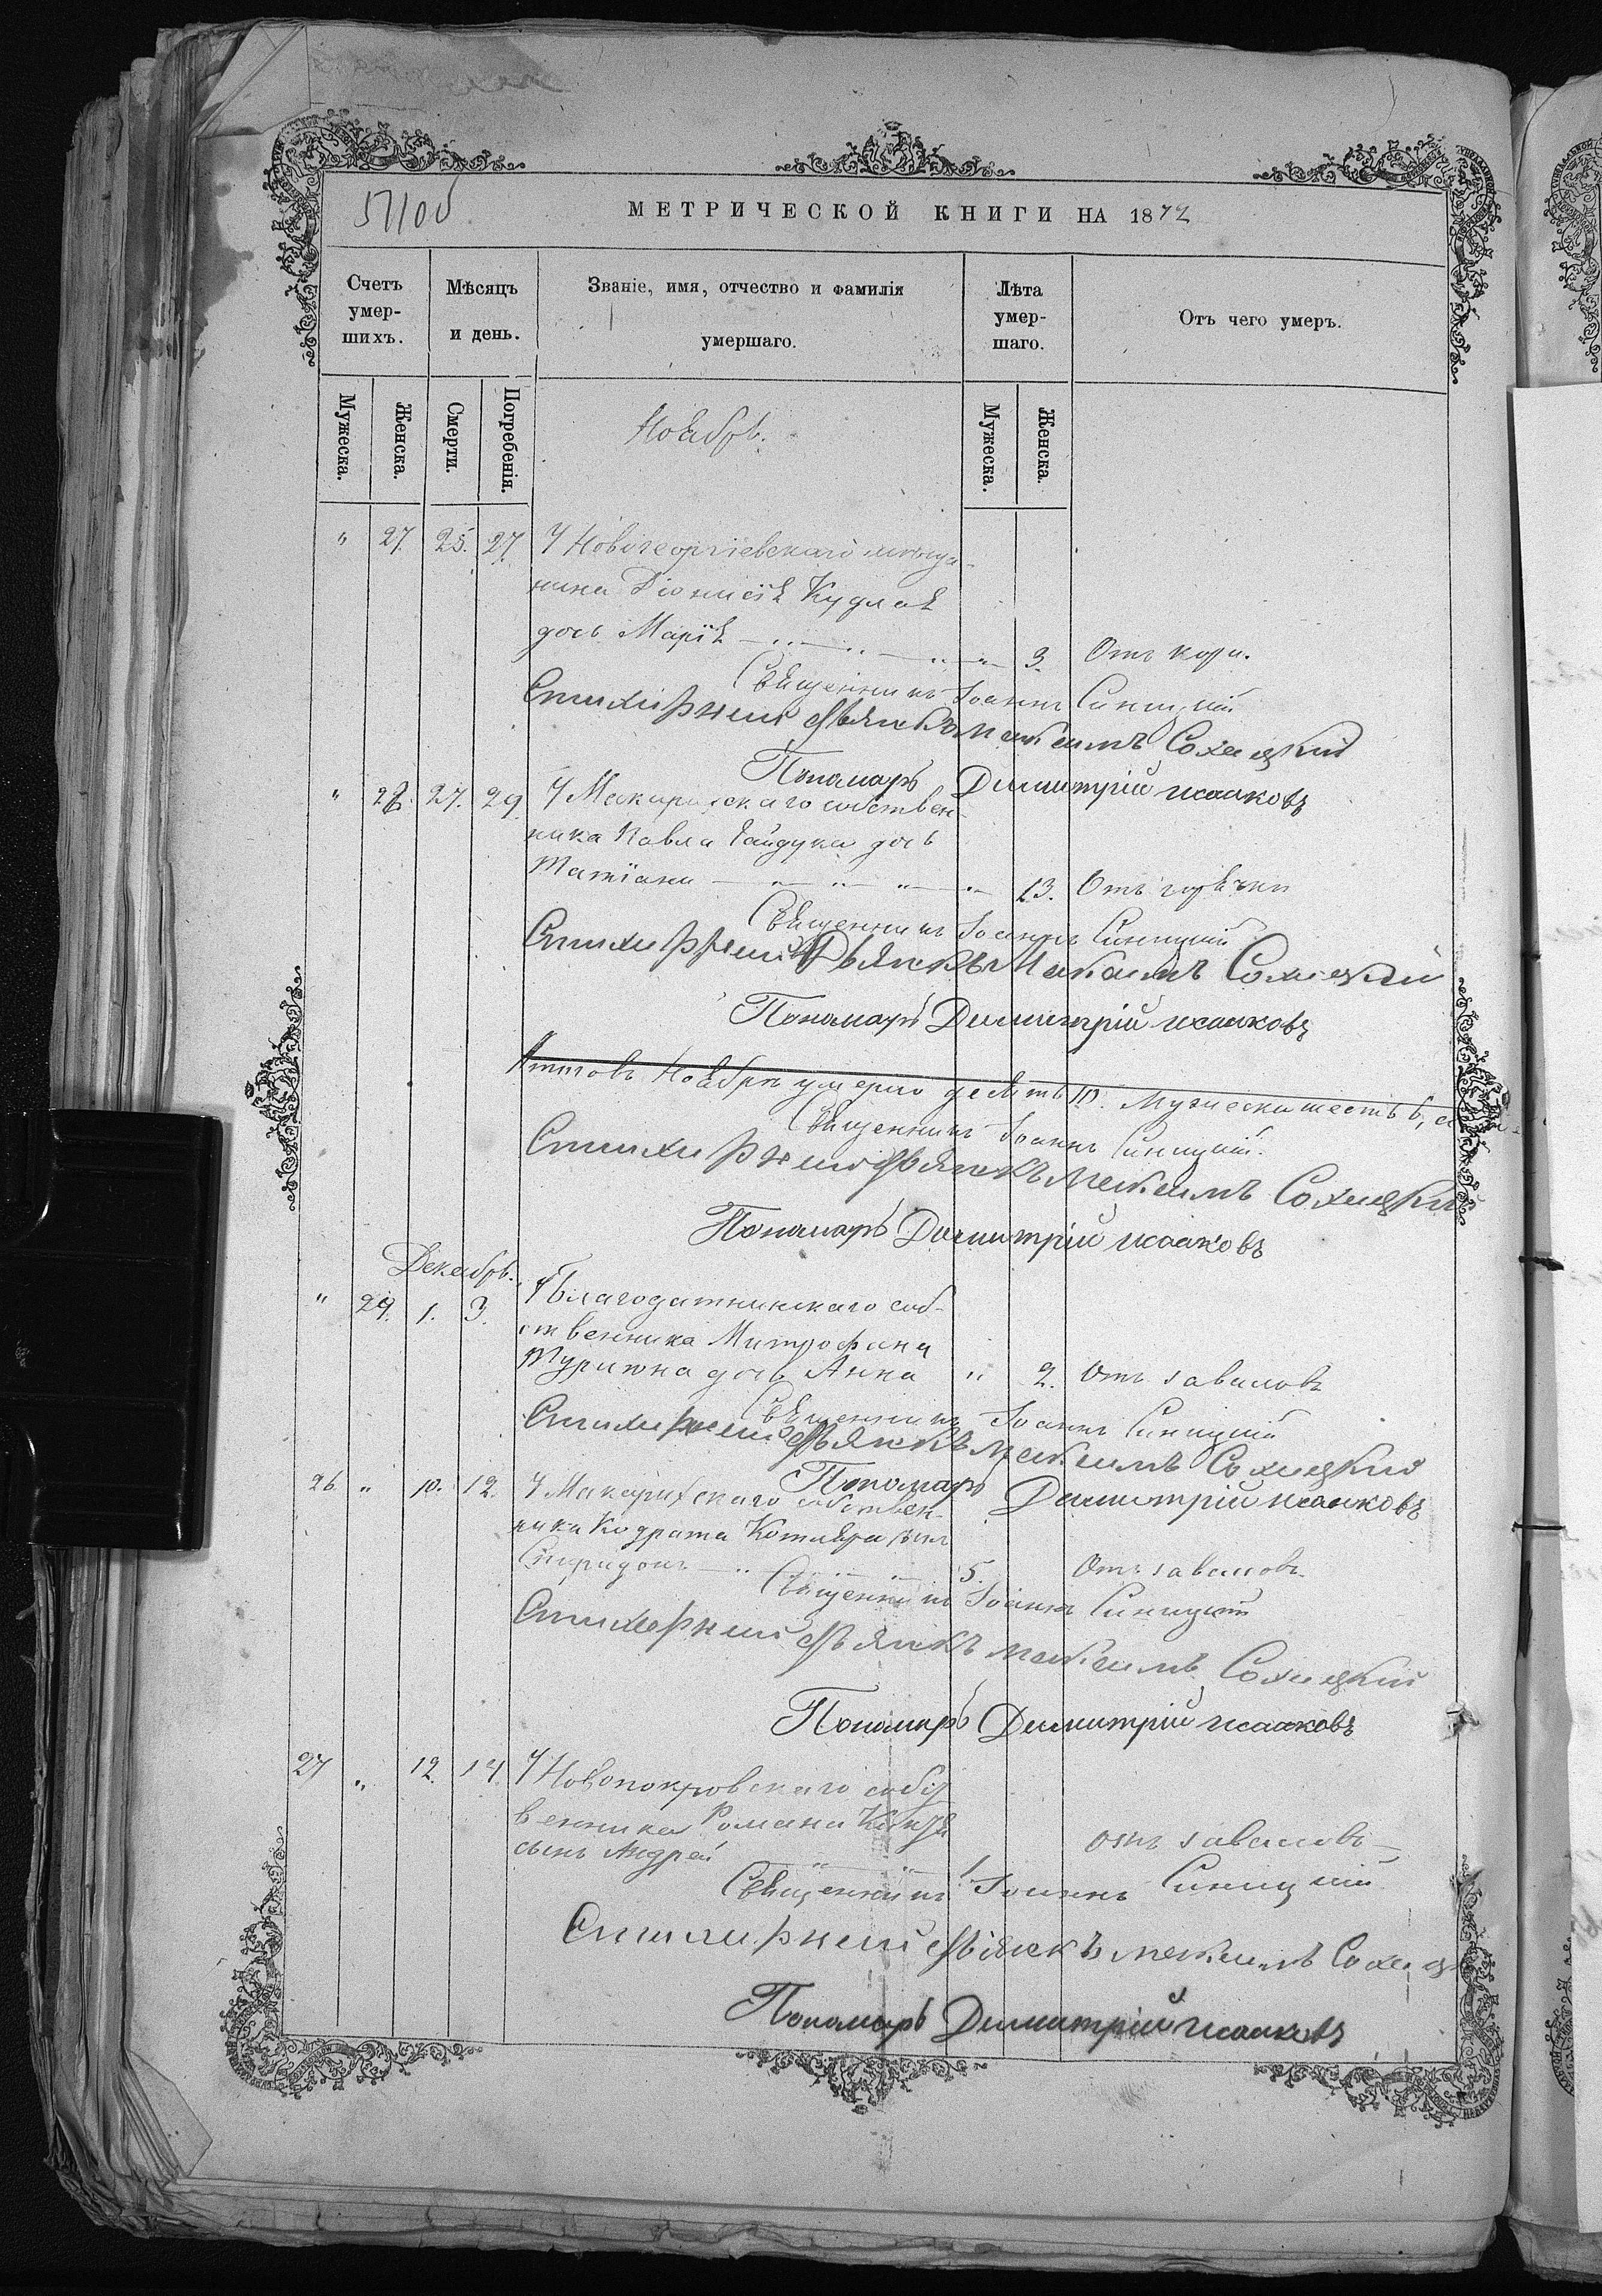 511об
МЕТРИЧЕСКОЙ КНИГИ НА 1872
Счетъ умер- шихъ.
Мѣсяцъ и день.
Званіе, имя, отчество и фамилія умершаго.
Лѣта умер- шаго.
Отъ чего умеръ.
Мужеска. Женска. Смерти. Погребенія. Мужеска. Женска.
Ноябрь.
" 27. 25. 27. У Новогеоргіевскаго мѣща-
нина Діонисія Кудлая
дочь Марія 3. Отъ кори.
Священникъ Іоаннъ Синицкій
Стихарный дьячекъ Максимъ Сохацкій
Пономарь Димитрій Исаковъ
" 28. 27. 29. У Макарихскаго собствен-
ника Павла Гайдука дочь
Татіана 13. Отъ горячки
Священникъ Іоаннъ Синицкій
Стихарный Дьячекъ Максимъ Сохацкій
Пономарь Димитрій Исаковъ
Итого въ Ноябрѣ умерло десять 10. Мужеска шесть 6,
Священникъ Іоаннъ Синицкій.
Стихарный дьячекъ Максимъ Сохацкій
Пономарь Димитрій Исаковъ
Декабрь.
" 29. 1. 3. У Благодатнинскаго соб-
ственника Митрофана
дочь Анна " 2. Отъ заваловъ
Священникъ Іоаннъ Синицкій
Стихарный дьячекъ Максимъ Сохацкій
Пономарь Димитрій Исаковъ
26. " 10. 12. У Макарихскаго собствен-
ника Кодрата Котляра сынъ
Спиридонъ 5. Отъ заваловъ
Священникъ Іоаннъ Синицкій
Стихарный дьячекъ Максимъ Сохацкій
Пономарь Димитрій Исаковъ
27 " 12. 14. У Новопокровскаго собст
венника Романа
сынъ Андрей 1. отъ заваловъ
Священникъ Іоаннъ Синицкій
Стихарный дьячекъ Максимъ Сохац
Пономарь Димитрій Исаковъ